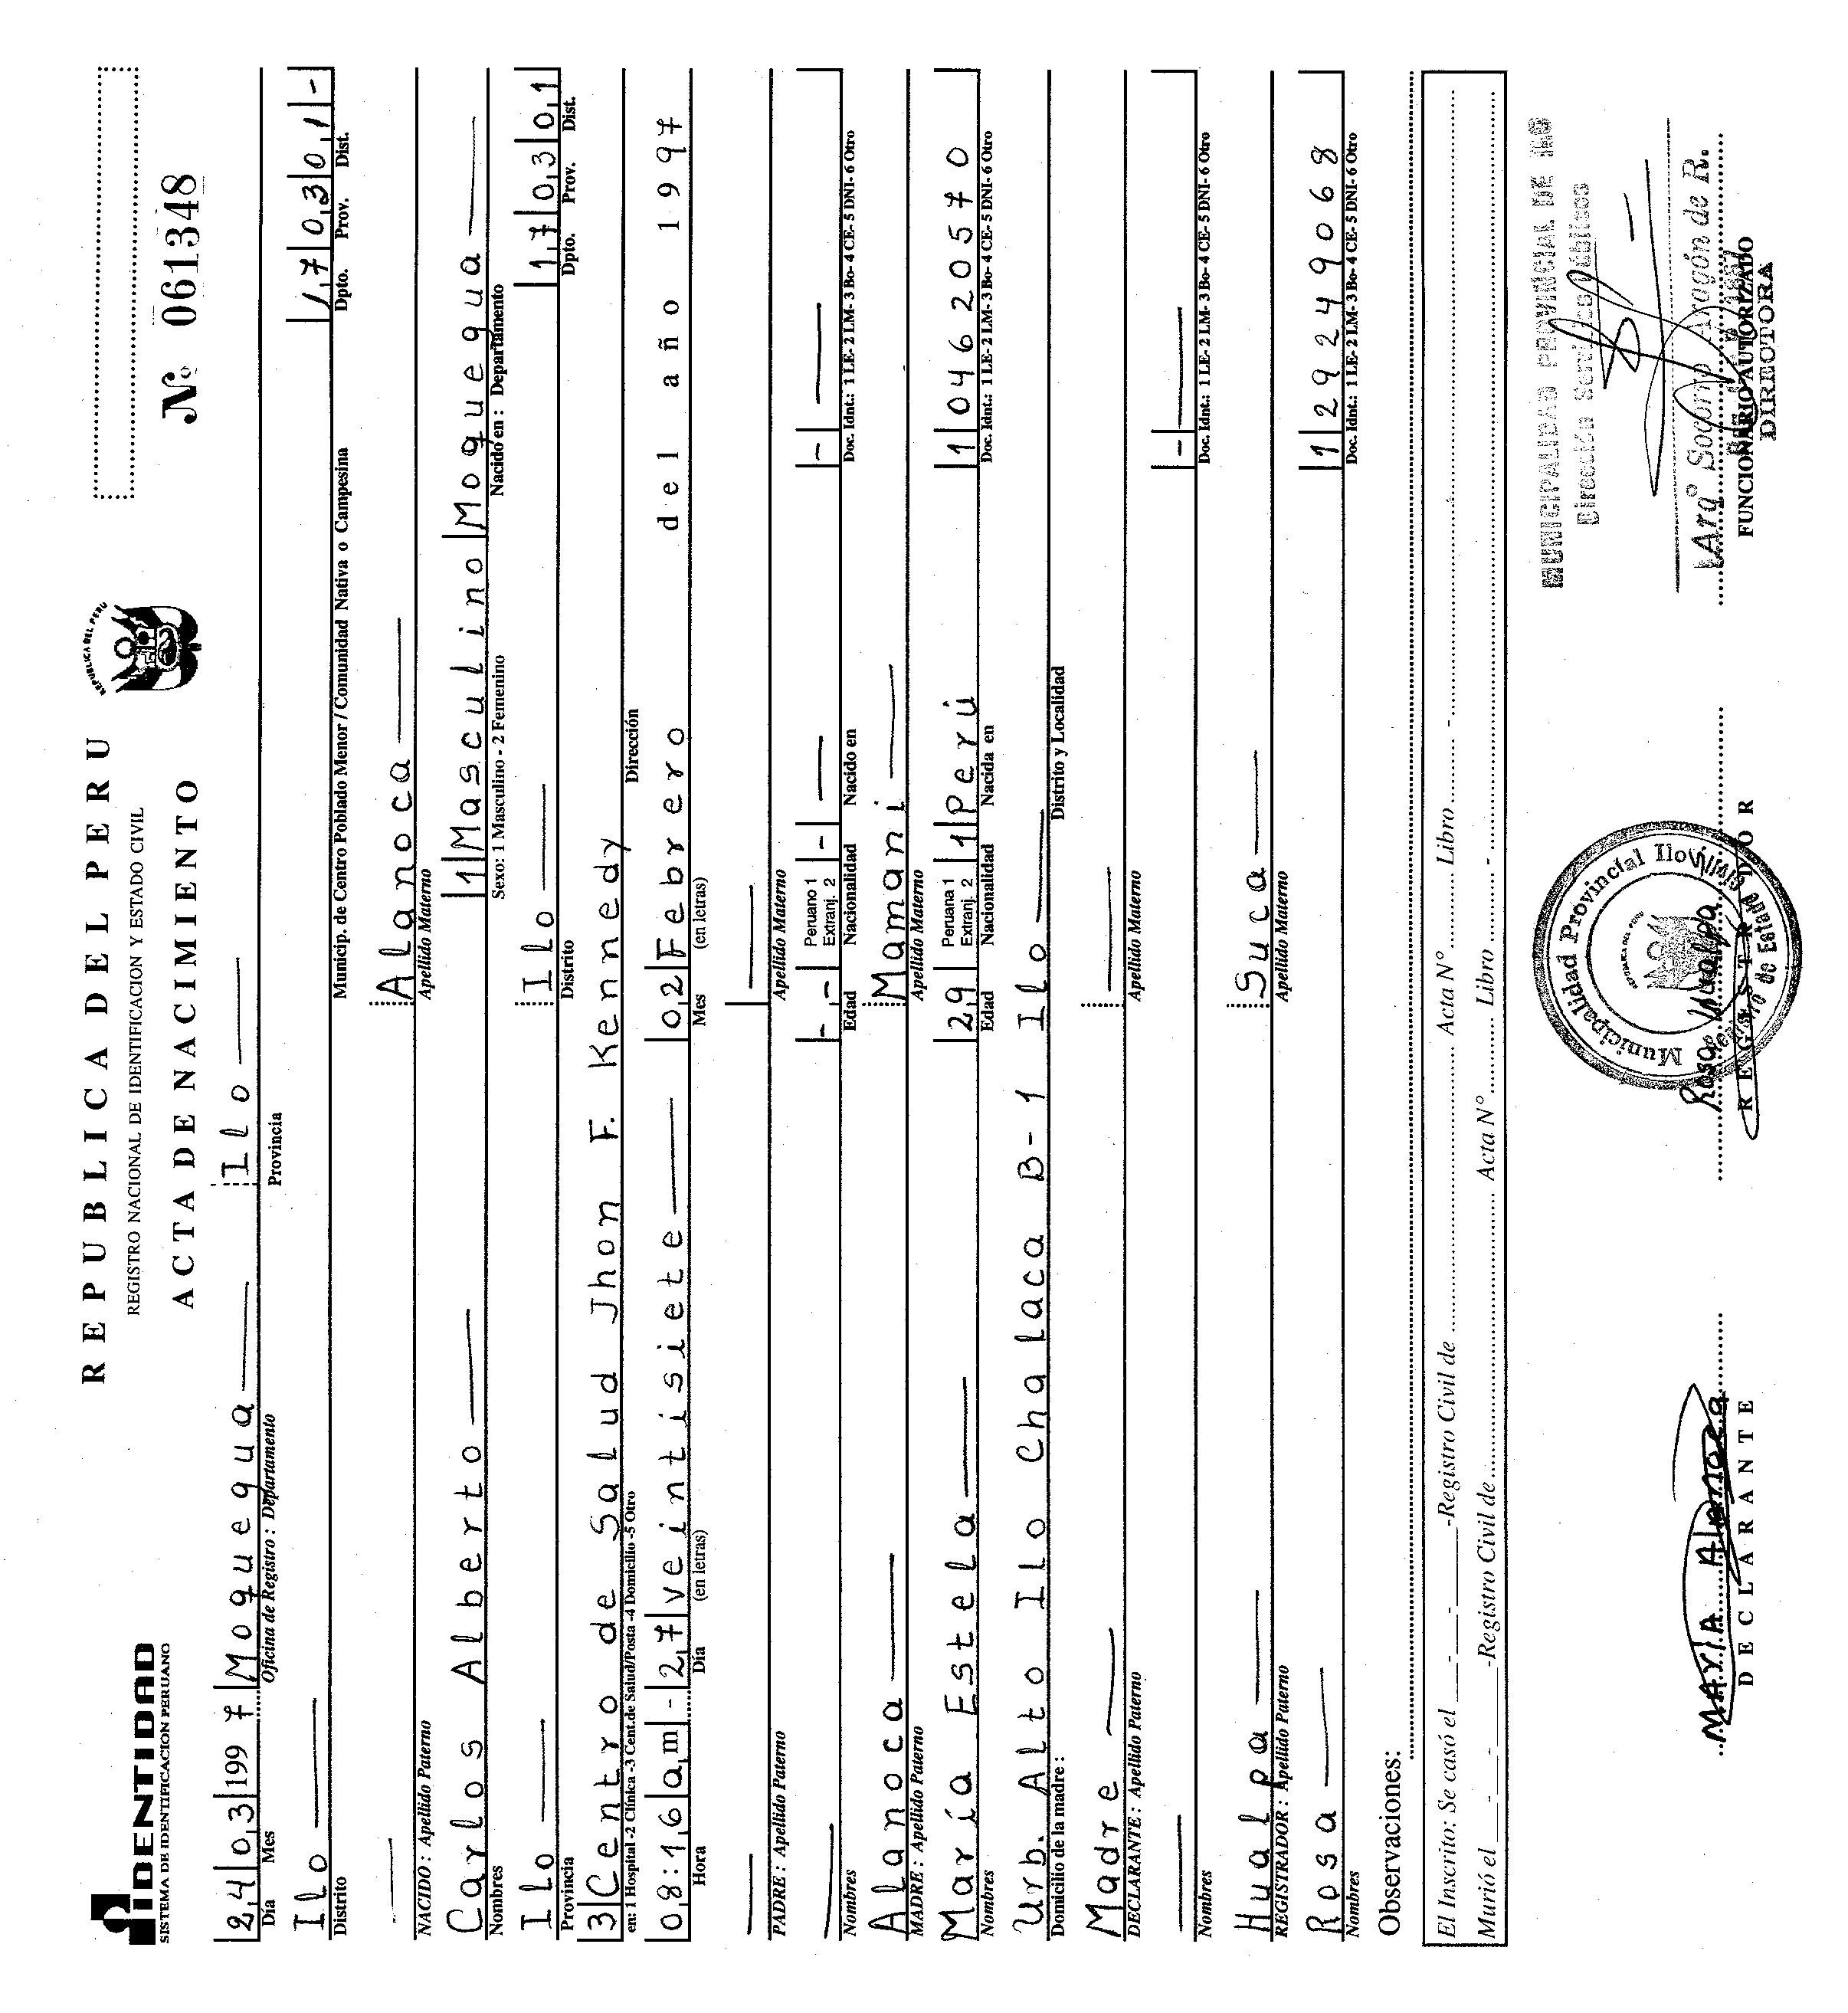 IDENTIDAD
SISTEMA DE IDENTIFICACION PERUANO
REPUBLICA DEL PERU
REGISTRO NACIONAL DE IDENTIFICACION Y ESTADO CIVIL
ACTA DE NACIMIENTO
REPUBLICA DEL PERU
Nº 061348
24 03 1997 Moquegua Ilo
Día Mes Oficina de Registro : Departamento Provincia
Ilo 17 03 01 -
Distrito Municip. de Centro Poblado Menor / Comunidad Nativa o Campesina Dpto. Prov. Dist.
Alanoca
NACIDO : Apellido Paterno Apellido Materno
Carlos Alberto 1 Masculino Moquegua
Nombres Sexo: 1 Masculino - 2 Femenino Nacido en : Departamento
Ilo Ilo 17 03 01
Provincia Distrito Dpto. Prov. Dist.
3 Centro de Salud Jhon F. Kennedy
en: 1 Hospital -2 Clínica -3 Cent.de Salud/Posta -4 Domicilio -5 Otro Dirección
08:16 am - 27 veintisiete 02 Febrero del año 1997
Hora Día (en letras) Mes (en letras)
PADRE : Apellido Paterno Apellido Materno
- - Peruano 1 Extranj. 2 - -
Nombres Edad Nacionalidad Nacido en Doc. Idnt.: 1 LE- 2 LM- 3 Bo- 4 CE- 5 DNI- 6 Otro
Alanoca Mamani
MADRE : Apellido Paterno Apellido Materno
María Estela 29 Peruana 1 Extranj. 2 1 Perú 1 04620570
Nombres Edad Nacionalidad Nacida en Doc. Idnt.: 1 LE- 2 LM- 3 Bo- 4 CE- 5 DNI- 6 Otro
Urb. Alto Ilo Chalaca B-1 Ilo
Domicilio de la madre : Distrito y Localidad
Madre
DECLARANTE : Apellido Paterno Apellido Materno
-
Nombres Doc. Idnt.: 1 LE- 2 LM- 3 Bo- 4 CE- 5 DNI- 6 Otro
Hualpa Suca
REGISTRADOR : Apellido Paterno Apellido Materno
Rosa 1 29249068
Nombres Doc. Idnt.: 1 LE- 2 LM- 3 Bo- 4 CE- 5 DNI- 6 Otro
Observaciones:
El Inscrito: Se casó el - - -Registro Civil de Acta Nº Libro -
Murió el - - -Registro Civil de Acta Nº Libro -
MUNICIPALIDAD PROVINCIAL DE ILO
Dirección Servicios Públicos
Municipalidad Provincial Ilo
Registro de Estado Civil
María Alanoca
Rosa Hualpa
Socorro Aragón de R.
DECLARANTE REGISTRADOR FUNCIONARIO AUTORIZADO
DIRECTORA